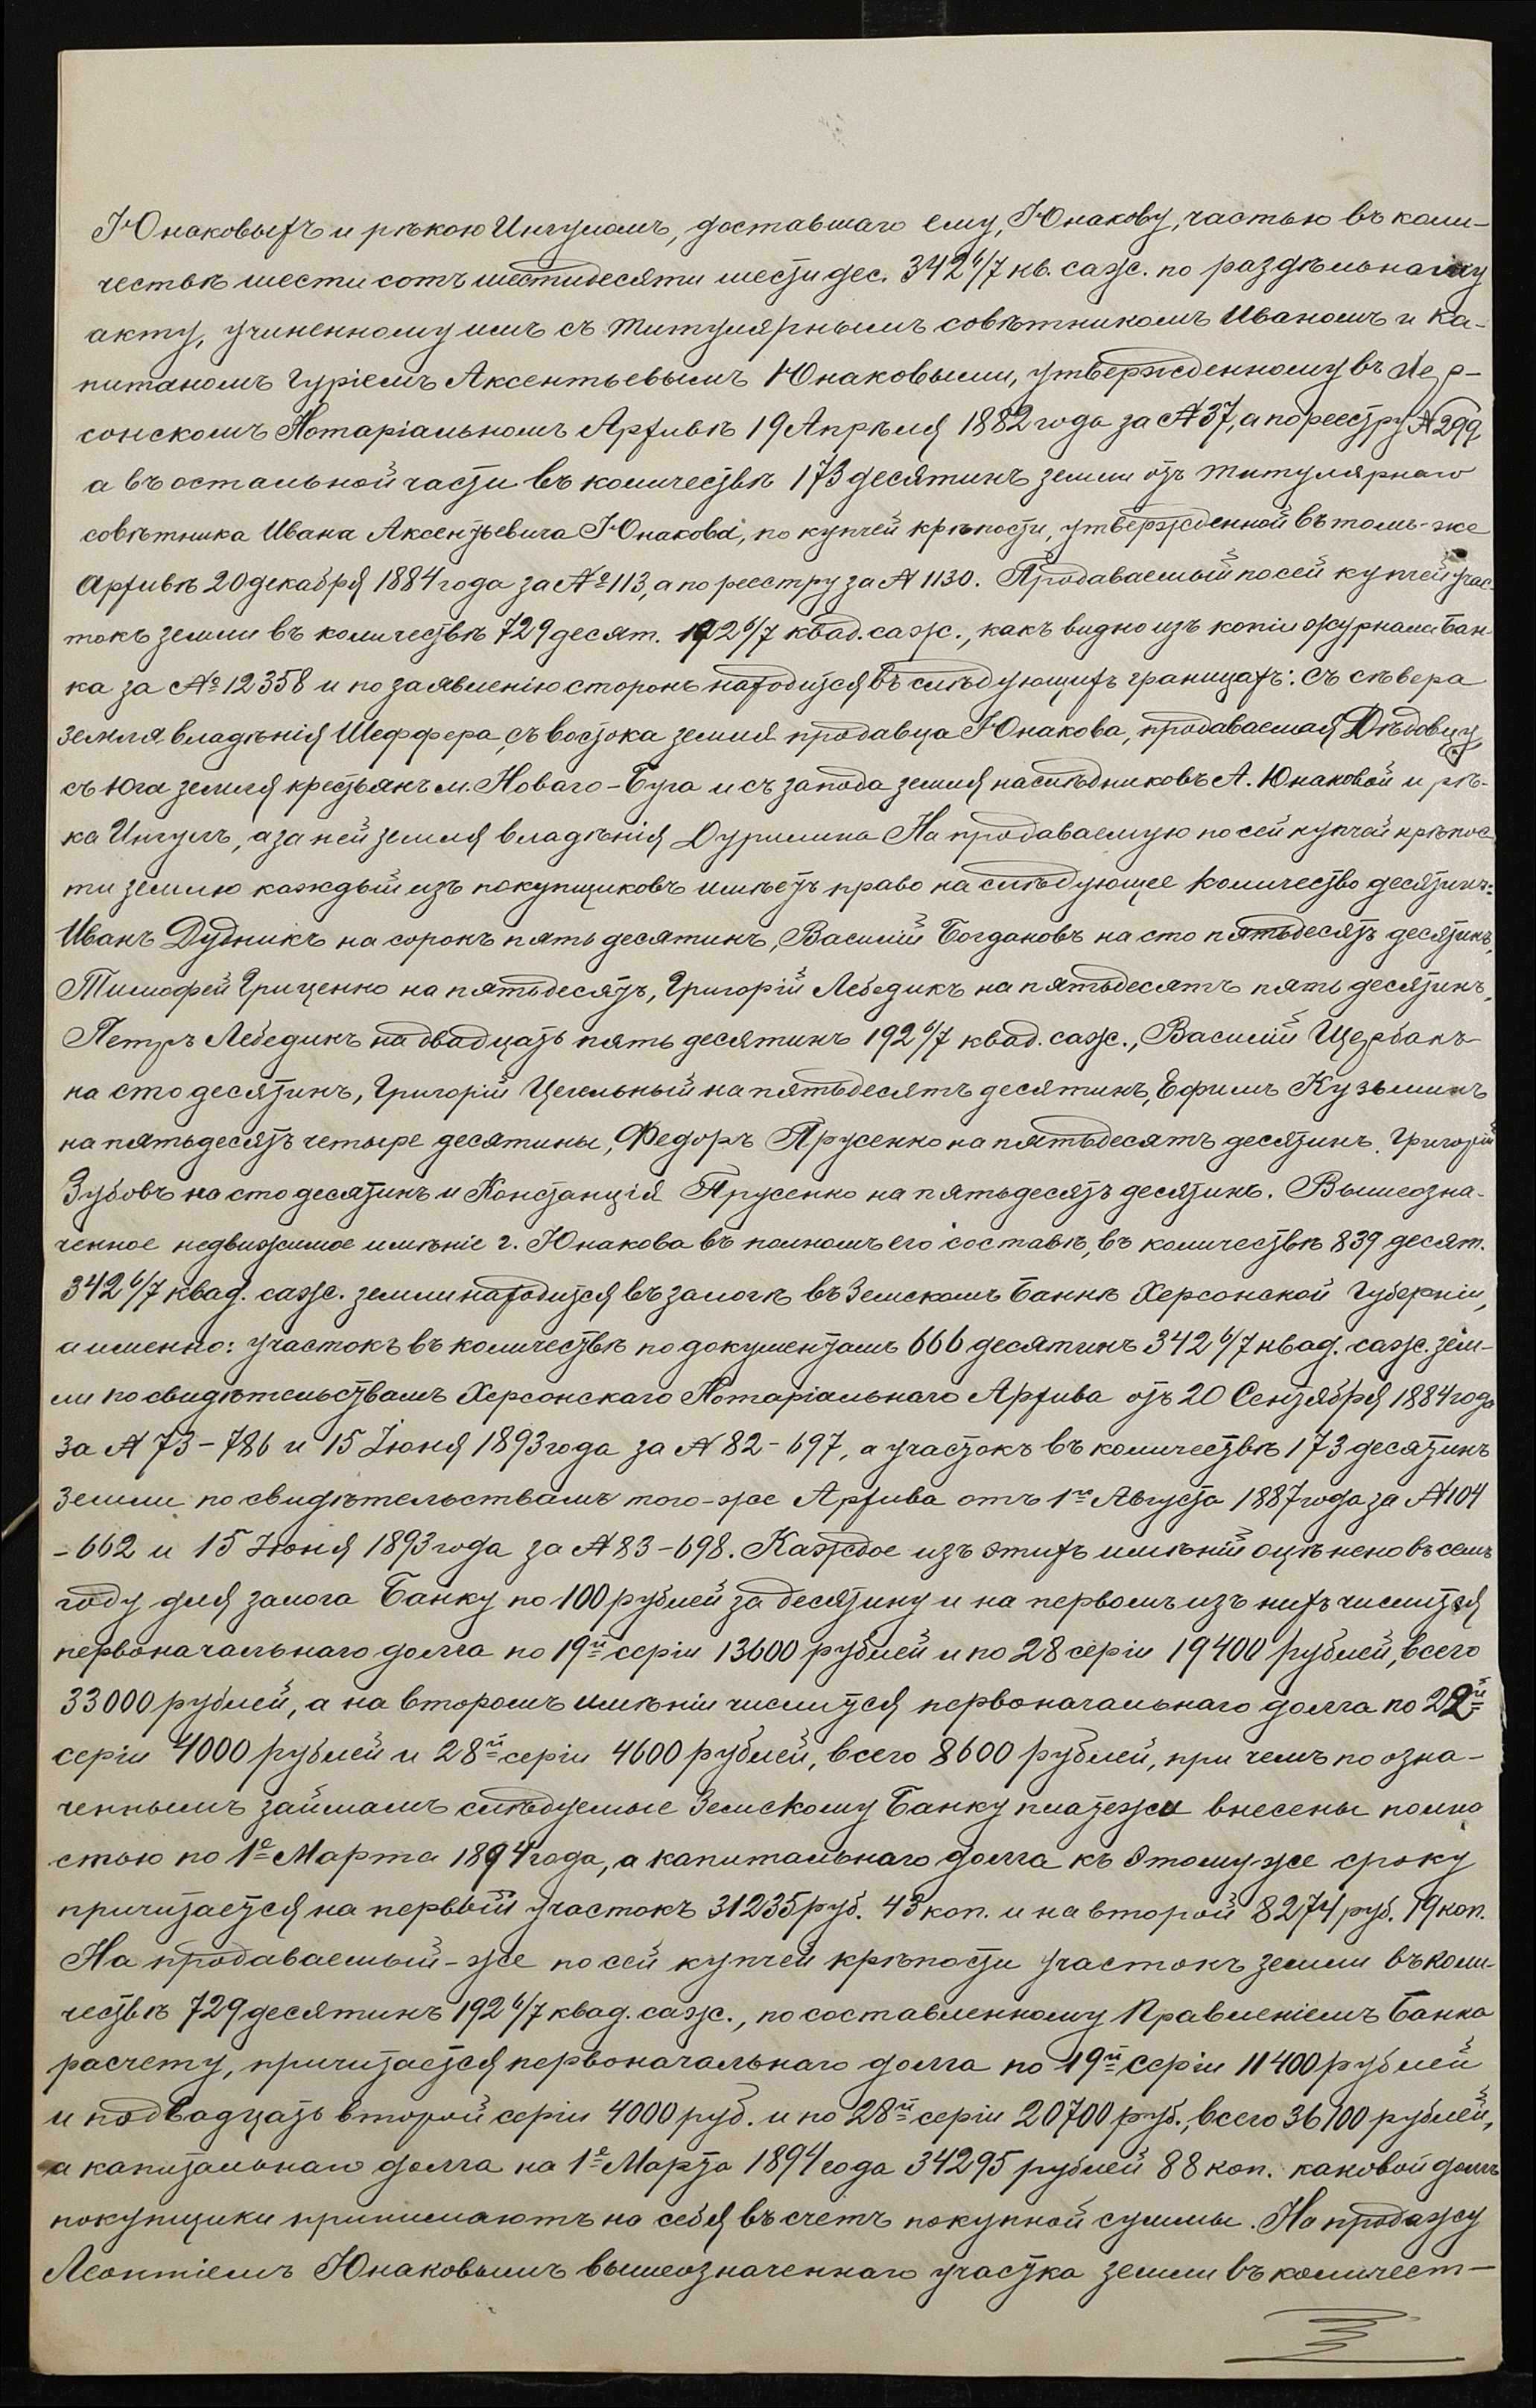 Юнаковыхъ и рѣкою Ингуломъ, доставшаго ему, Юнакову, частью въ коли-
чествѣ шести сотъ шестидесяти шести дес. 342 6/7 кв. саж. по раздѣльному
акту, учиненному имъ съ титулярнымъ совѣтникомъ Иваномъ и ка-
питаномъ Гуріемъ Аксентьевымъ Юнаковыми, утвержденному въ Хер-
сонскомъ Нотаріальномъ Архивѣ 19 Апрѣля 1882 года за № 37, а по реестру № 299,
а въ остальной части въ количествѣ 173 десятинъ земли отъ титулярнаго
совѣтника Ивана Аксентьевича Юнакова, по купчей крѣпости, утвержденной въ томъ-же
Архивѣ 20 декабря 1884 года за № 113, а по реестру за № 1130. Продаваемый по сей купчей учас-
токъ земли въ количествѣ 729 десят. 192 6/7 квад. саж., какъ видно изъ копіи журнала Бан-
ка за № 12358 и по заявленію сторонъ находится въ слѣдующихъ границахъ: съ сѣвера
земля владѣнія Шеффера, съ востока земля продавца Юнакова, продаваемая Дѣдовцу,
съ юга земля крестьянъ м. Новаго-Буга и съ запада земля наслѣдниковъ А. Юнаковой и рѣ-
ка Ингулъ, а за ней земля владѣнія Дурилина На продаваемую по сей купчей крѣпос-
ти землю каждый изъ покупщиковъ имѣетъ право на слѣдующее количество десятинъ:
Иванъ Дудникъ на сорокъ пять десятинъ, Василій Богдановъ на сто пятьдесятъ десятинъ,
Тимофей Гриценко на пятьдесятъ, Григорій Лебедикъ на пятьдесятъ пять десятинъ,
Петръ Лебедикъ на двадцать пять десятинъ 192 6/7 квад. саж., Василій Щербакъ
на сто десятинъ, Григорій Цегельный на пятьдесятъ десятинъ, Ефимъ Кузьминъ
на пятьдесятъ четыре десятины, Федоръ Прусенко на пятьдесятъ десятинъ, Григорій
Зубовъ на сто десятинъ и Констанція Прусенко на пятьдесятъ десятинъ. Вышеозна-
ченное недвижимое имѣніе г. Юнакова въ полномъ его составѣ, въ количествѣ 839 десят.
342 6/7 квад. саж. земли находится въ залогѣ въ Земскомъ Банкѣ Херсонской Губерніи,
а именно: участокъ въ количествѣ по документамъ 666 десятинъ 342 6/7 квад. саж. зем-
ли по свидѣтельствамъ Херсонскаго Нотаріальнаго Архива отъ 20 Сентября 1884 года
за № 73-786 и 15 Іюня 1893 года за № 82-697, а участокъ въ количествѣ 173 десятинъ
земли по свидѣтельствамъ того-же Архива отъ 1го Августа 1887 года за № 104
-662 и 15 Іюня 1893 года за № 83-698. Каждое изъ этихъ имѣній оцѣнено въ семъ
году для залога Банку по 100 рублей за десятину и на первомъ изъ нихъ числится
первоначальнаго долга по 19й серіи 13600 рублей и по 28 серіи 19400 рублей, всего
33000 рублей, а на второмъ имѣніи числится первоначальнаго долга по 22й
серіи 4000 рублей и 28й серіи 4600 рублей, всего 8600 рублей, при чемъ по озна-
ченнымъ займамъ слѣдуемые Земскому Банку платежи внесены полно
стью по 1е Марта 1894 года, а капитальнаго долга къ этому-же сроку
причитается на первый участокъ 31235 руб. 43 коп. и на второй 8274 руб. 19 коп.
На продаваемый-же по сей купчей крѣпости участокъ земли въ коли-
чествѣ 729 десятинъ 192 6/7 квад. саж., по составленному Правленіемъ Банка
расчету, причитается первоначальнаго долга по 19й серіи 11400 рублей
и по двадцать второй серіи 4000 руб. и по 28й серіи 20700 руб., всего 36100 рублей,
а капитальнаго долга на 1е Марта 1894 года 34295 рублей 88 коп. каковой долгъ
покупщики принимаютъ на себя въ счетъ покупной суммы. На продажу
Леонтіемъ Юнаковымъ вышеозначеннаго участка земли въ количест-